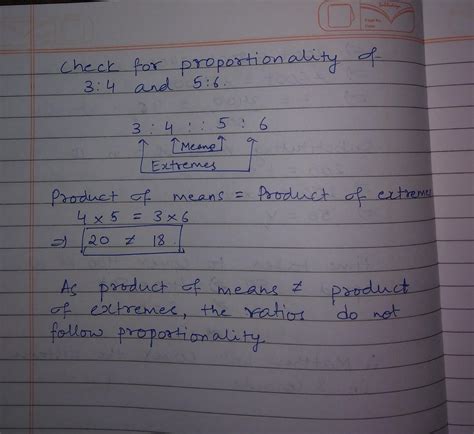 Check for proportionality of
3:4 and 5:6.
3 : 4 :: 5 : 6
Means
Extremes
Product of means = Product of extreme
4 × 5 = 3 × 6
⇒ 20 ≠ 18
As product of means ≠ product
of extremes, the ratios do not
follow proportionality